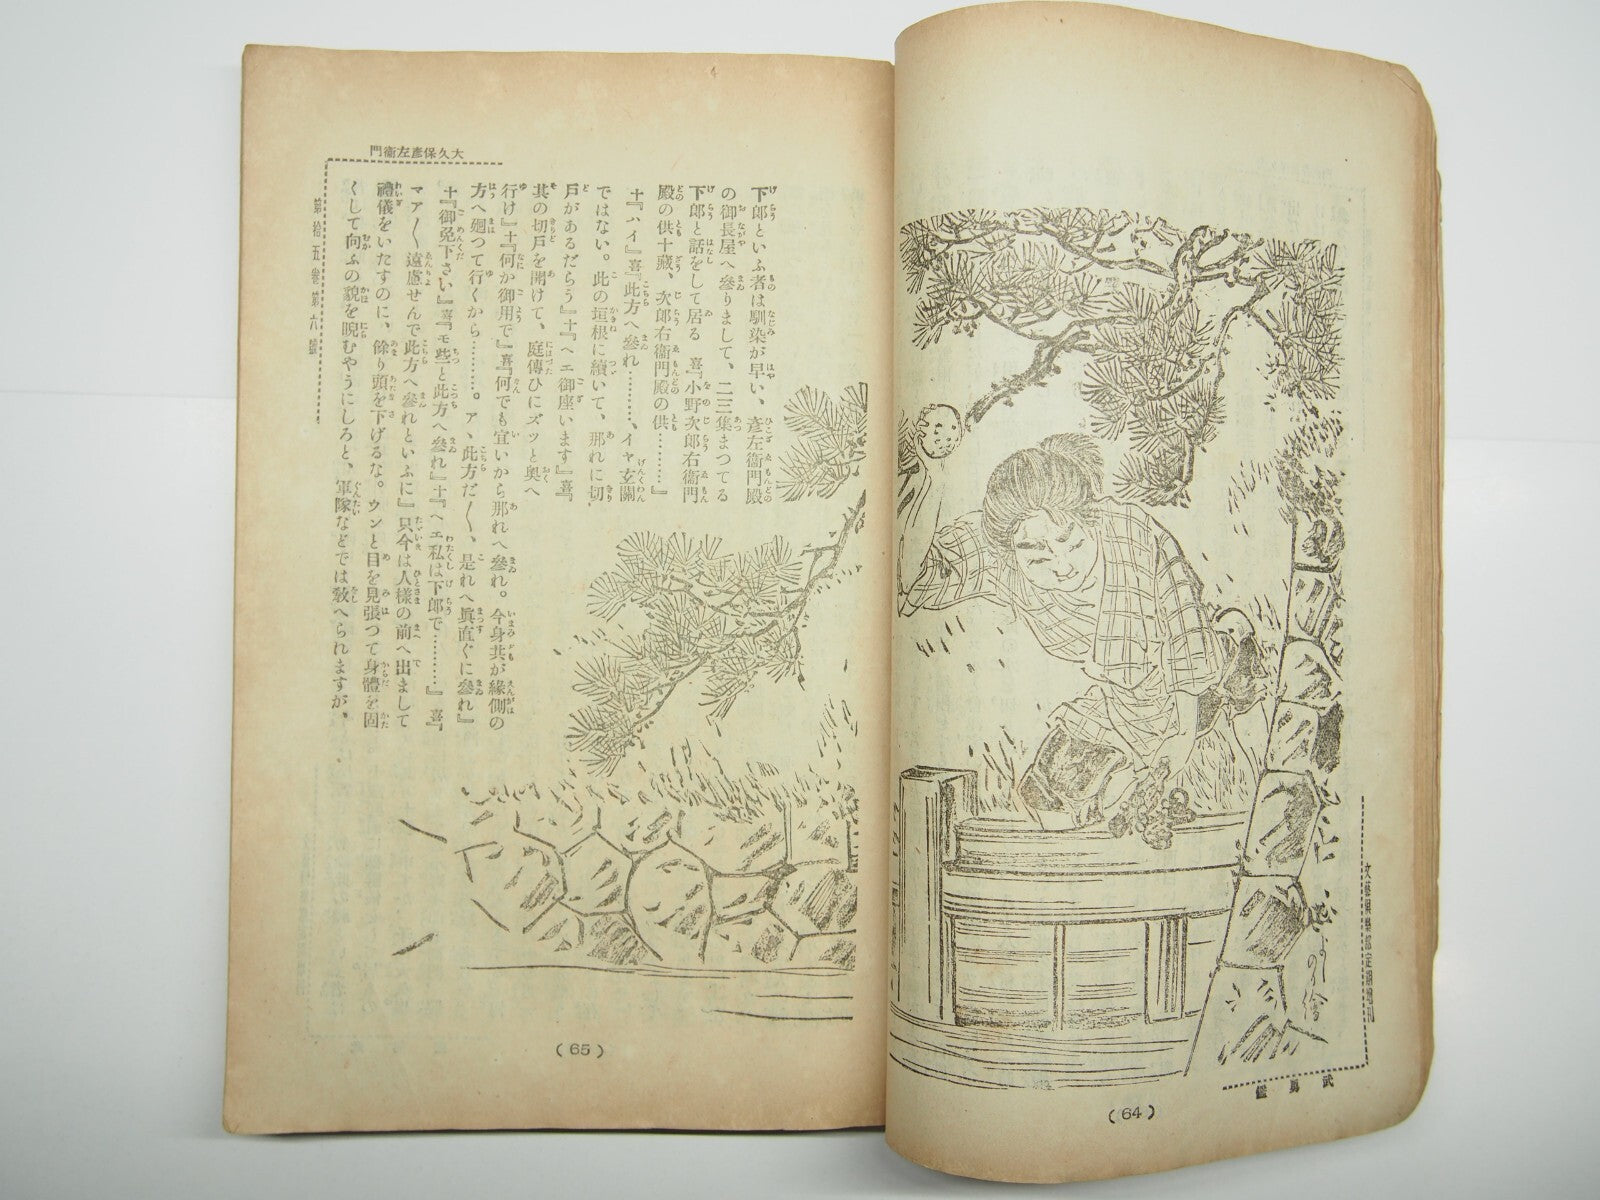 文藝倶樂部定期増刊
武勇鑑
(64)
大久保彥左衞門
第拾五卷第六號
下郎といふ者は馴染が早い、彥左衞門殿
の御長屋へ參りまして、二三集まつてる
下郎と話をして居る　喜『小野次郎右衞門
殿の供十藏、次郎右衞門殿の供………』
十『ハイ』喜『此方へ參れ………、イヤ玄關
ではない。此の垣根に續いて、那れに切
戶があるだらう』十『ヘエ御座います』喜『
其の切戶を開けて、庭傳ひにズッと奥へ
行け』十『何か御用で』喜『何でも宜いから那れへ參れ。今身共が緣側の
方へ廻つて行くから………。ア、此方だ〳〵、是れへ眞直ぐに參れ』
十『御免下さい』喜『モ些と此方へ參れ』十『ヘエ私は下郎で………』喜『
マア〳〵遠慮せんで此方へ參れといふに』只今は人樣の前へ出まして
禮儀をいたすのに、餘り頭を下げるな。ウンと目を見張つて身體を固
くして向ふの貌を睨むやうにしろと、軍隊などでは敎へられますが、
(65)